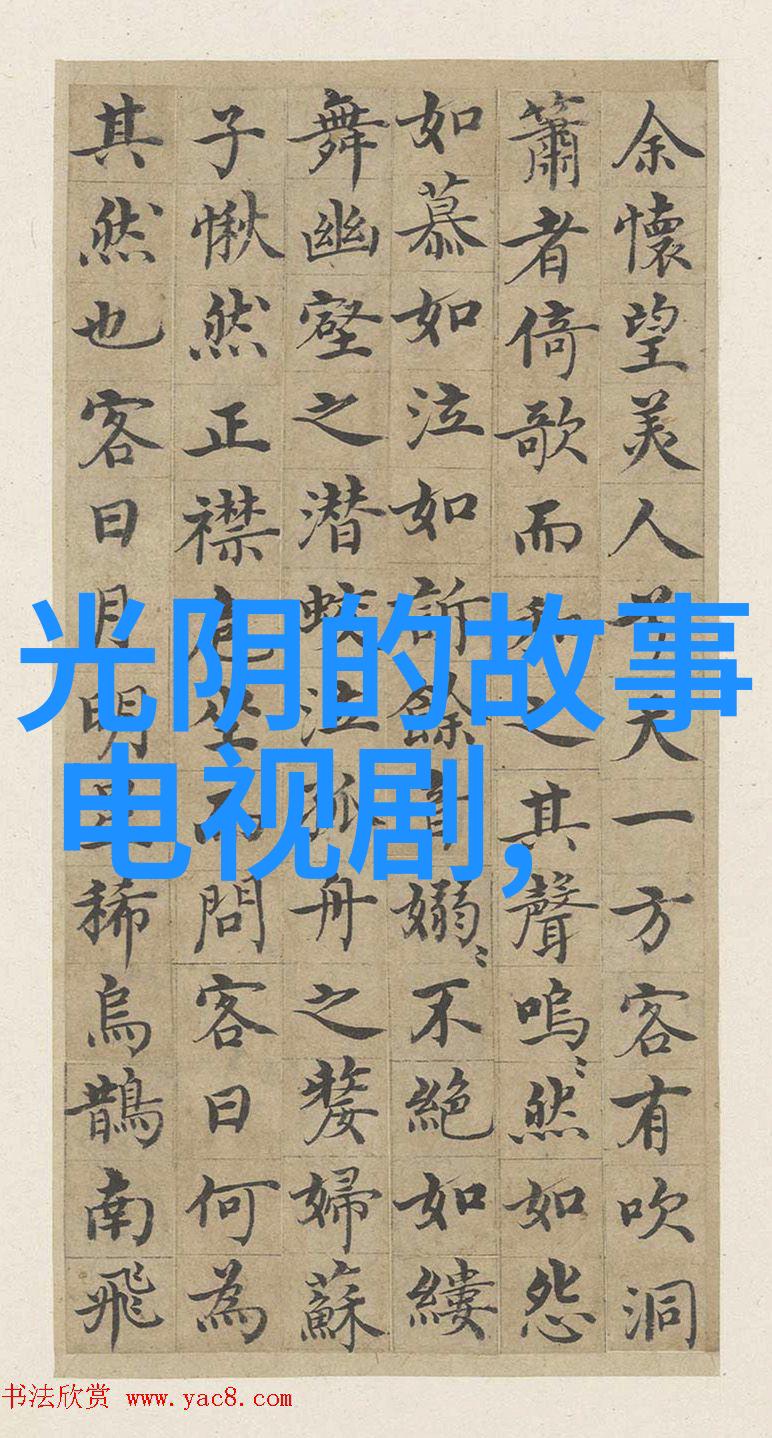 余懷望美人兮天一方客有吹洞
簫者倚歌而和之其聲嗚〻然如怨
如慕如泣如訴餘音嫋〻不絶如縷
舞幽壑之潜蛟泣孤舟之嫠婦蘇
子愀然正襟危坐而問客曰何為
其然也客曰月明星稀烏鵲南飛
光阴的故事
电视剧,
书法欣赏 www.yac8.com